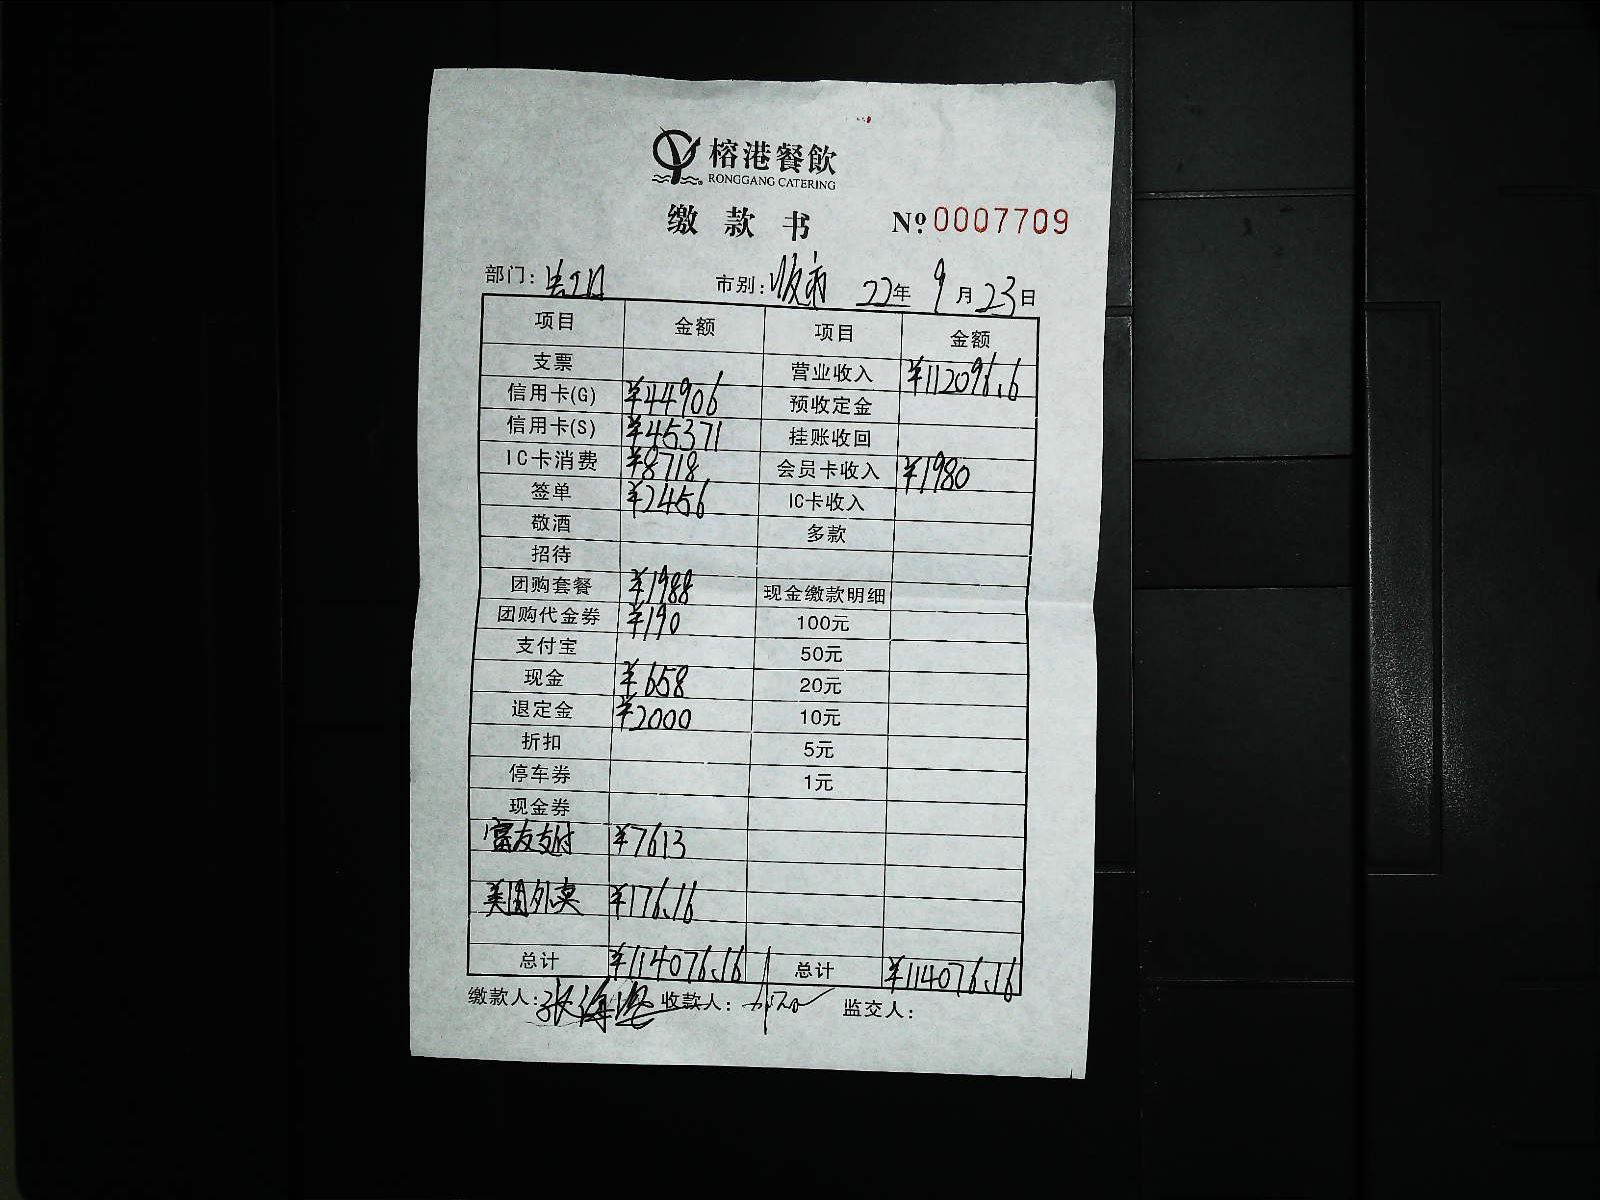 榕港餐飲
RONGGANG CATERING
缴款书 № 0007709
部门: 市别: 晚市 22年 9月 23日
项目 金额 项目 金额
支票 营业收入 ¥112096.16
信用卡(G) ¥44906 预收定金
信用卡(S) ¥45371 挂账收回
IC卡消费 ¥8718 会员卡收入 ¥1980
签单 ¥2456 IC卡收入
敬酒 多款
招待
团购套餐 ¥1988 现金缴款明细
团购代金券 ¥190 100元
支付宝 50元
现金 ¥658 20元
退定金 ¥2000 10元
折扣 5元
停车券 1元
现金券
富友支付 ¥7613
美团外卖 ¥176.16
总计 ¥114076.16 总计 ¥114076.16
缴款人: 收款人: 监交人: